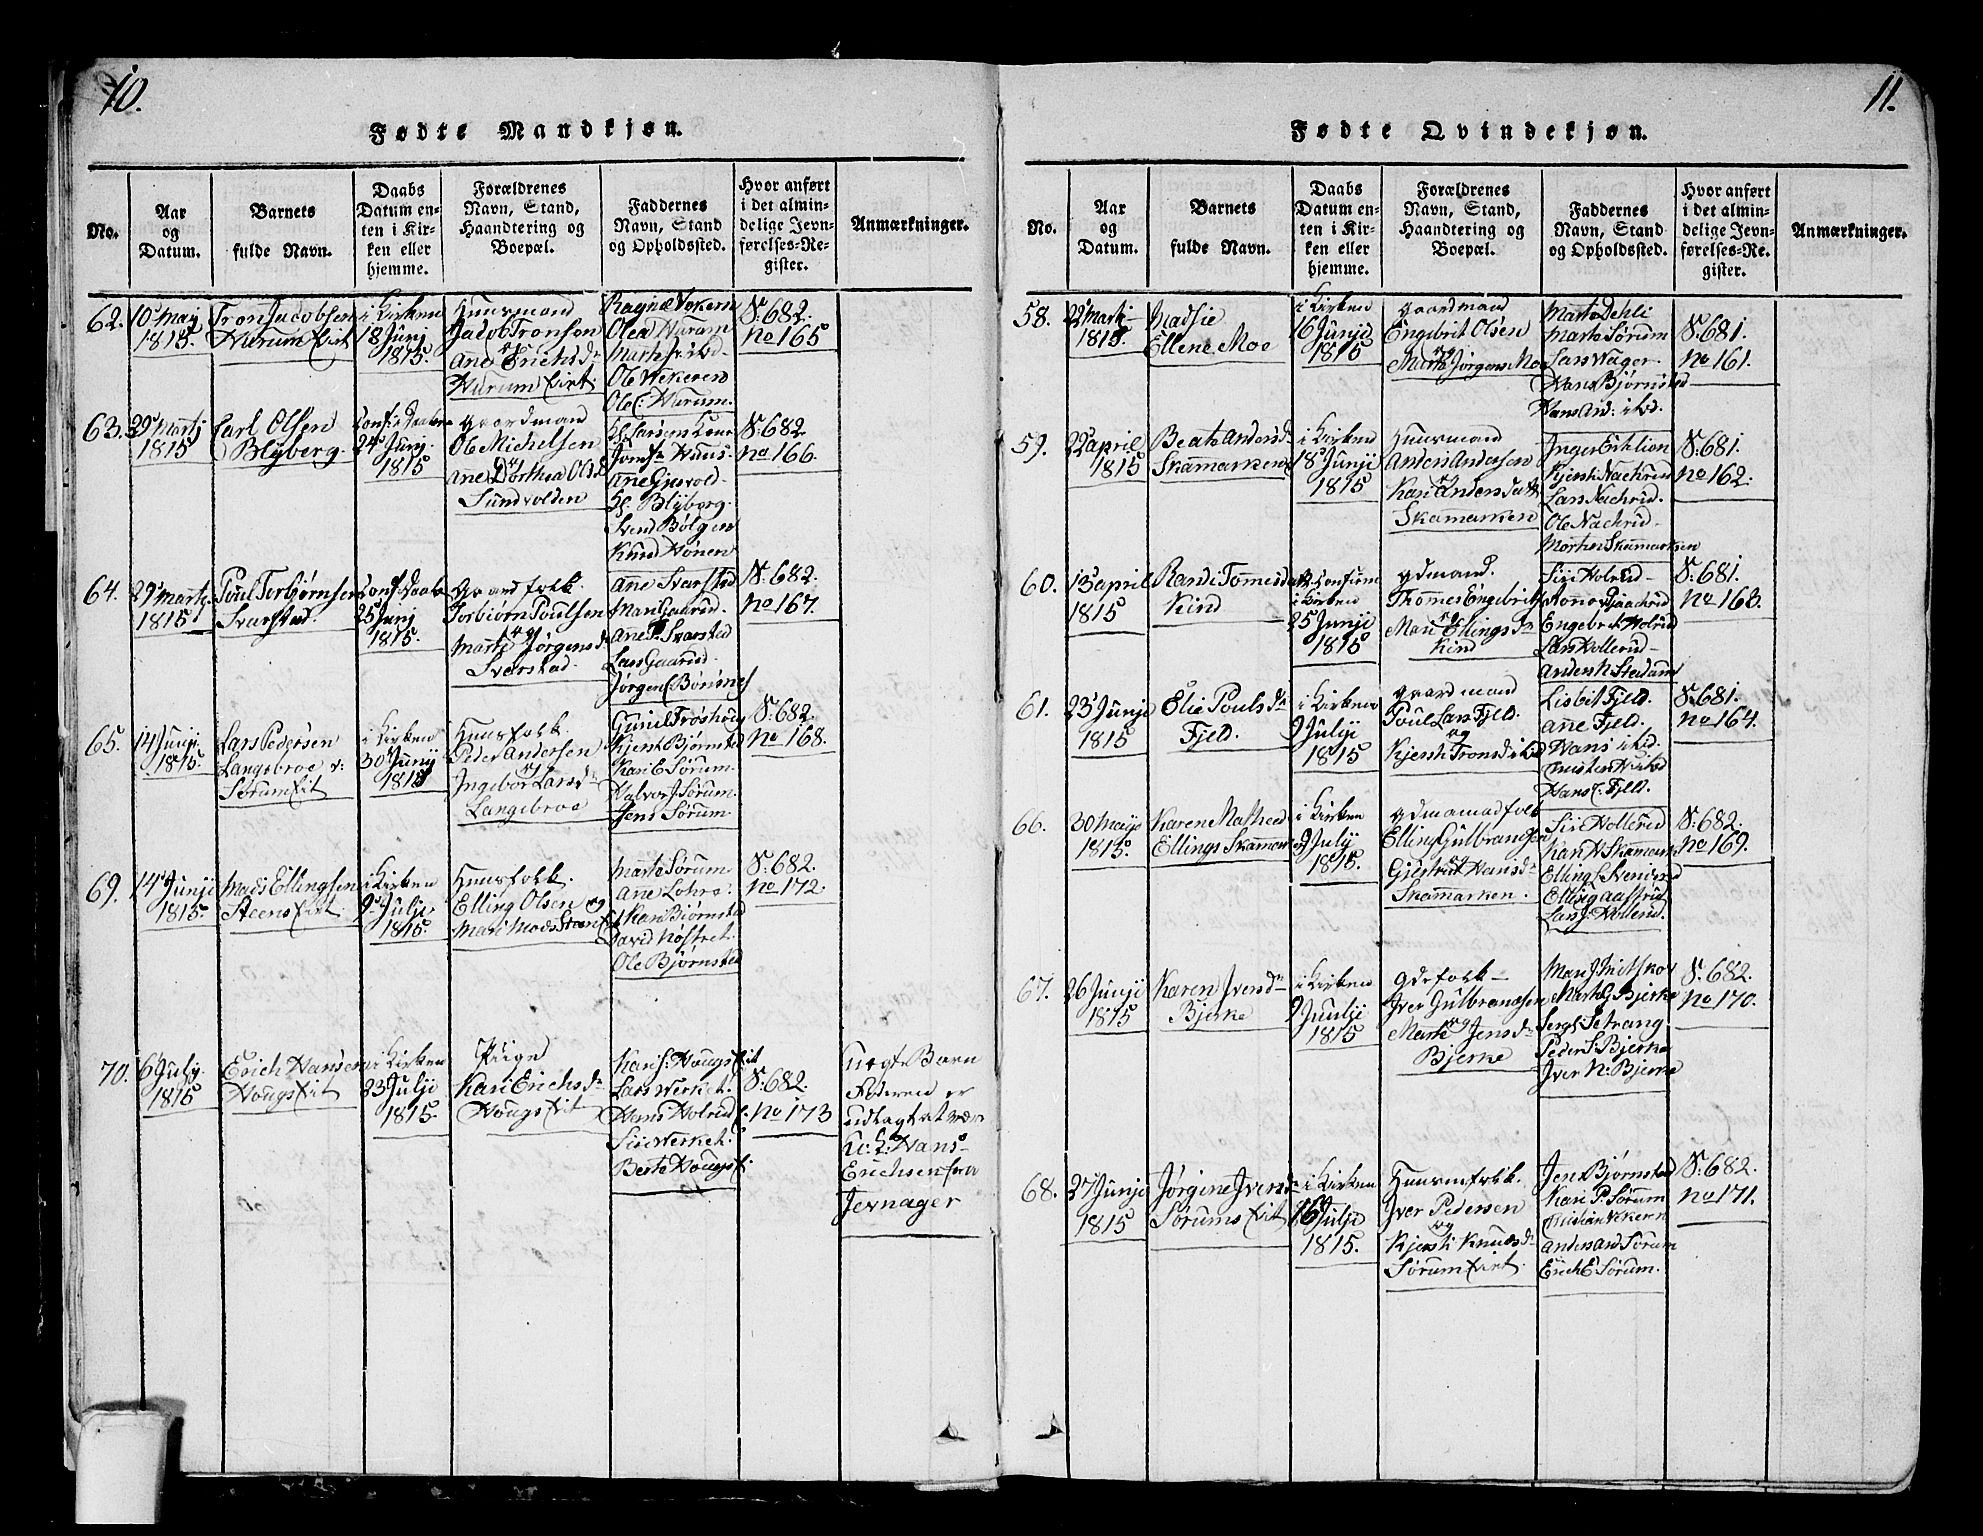 10.
Fødte Mandkjøn.
No.
Aar
og
Datum.
Barnets
fulde Navn.
Daabs
Datum en-
ten i Kir-
ken eller
hjemme.
Forældrenes
Navn, Stand,
Haandtering og
Boepæl.
Faddernes
Navn, Stand
og Opholdssted.
Hvor anført
i det almin-
delige Jevn-
førelses-Re-
gister.
Anmærkninger.
62.
10 May
1815.
Tron Jacobsen
Hurum Eiet
i Kirken
18 Junj
1815.
Huusmand
Jacob Tronsen
og
Ane Erichsdr
Hurum Eiet.
Ragne Vekern
Olea Hurum
Marthe ibd
Ole Wekeren
Ole Hurum.
S: 682.
No 165
63.
29 Martj
1815
Carl Olsen
Blyberg.
24 Junj
1815
Gaardmand
Ole Michelsen
og
Ane Dorthea Olsd
Sundvolden
Ane Gjesvold
Hl Blyberg.
Svend Bølgen
Knud Hønen
S: 682.
No 166.
64.
29 Martj.
1815
Poul Torbjørnsen
Svarstad.
25 Junj
1815.
Gaardfolk
Torbiørn Poulsen
og
Marthe Jørgensd
Svarstad.
Ane Svarstad
Mari Gaarud.
Ane P. Svarsted
Lars Gaarud.
Jørgen Børsnes
S: 682.
No 167.
65.
14 Junji
1815.
Lars Pedersen
Langebroe v:
Sørum Eit
i Kirken
30 Junij
1815
Huusfolk.
Peder Andersen
og
Ingebor Larsdr
Langebroe
Gunil Frøshoug
Kjersti Bjørnsted
Kari E Sørum.
Halvor J. Sørum
Jens Sørum.
S: 682.
No 168.
69.
14 Junji
1815.
Mads Ellingsen
Steens Eiet.
i Kirken
9 Julji
1815.
Huusfolk.
Elling Olsen og
Mari Mads Steens Eit
Marte Sørum
Ane Lohre
Kari Bjørnsted
David Nøstret.
Ole Bjørnsted
S: 682.
No 172.
70.
6 July.
1815
Erich Hansen
Hougs Eit
i Kirken
23 Julji
1815.
Piige
Kari Erichsdr
Hougs Eit
Kari J. Hougs Eit
Lars Werket.
Hans Holrud
Siri Werket.
Berte Hougs Ei
S: 682.
No 173
Uægte Barn
Faderen er
udlagt at være
Hans
Erichsen fra
Jevnager
11.
Fødte Qvindekjøn.
No.
Aar
og
Datum.
Barnets
fulde Navn.
Daabs
Datum en-
ten i Kir-
ken eller
hjemme.
Forældrenes
Navn, Stand,
Haandtering og
Boepæl.
Faddernes
Navn, Stand
og Opholdssted.
Hvor anført
i det almin-
delige Jevn-
førelses-Re-
gister.
Anmærkninger.
58.
22 Marti
1815.
Madsie
Ellene Moe
i Kirken
16 Junji
1815
Gaardmand
Engebrit Olsen
og
Marte Jørgens Moe
Marte Dehli
Marte Sørum
Lars Wager.
Hans Bjørnsted
Hans And: ibd.
S: 681.
No 161.
59.
22 april
1815
Beate Andersdr
Skamarken
i Kirken
18 Junji
1815
Huusmand
Anders Andersen
og
Kari Andersdatt
Skamarken
Inger Eeklien
Kjersti Nachrud
Lars Nachrud.
Ole Nachrud
Morten Skamarken
S: 681.
No 162.
60.
13 april
1815
Randi Tomesdatt
Kind
Confirm
i Kirken
25 Junji
1815
Gdmand.
Thomes Engebrits
og
Mari Ellingsdr
Kind
Siri Holrud
Engebret Holrud
Lars Hollerud
Anders N. Stadum
S: 681.
No 163.
61.
23 Junji
1815
Elie Poulsdr
Fjeld.
i Kirken
9 Julji
1815
Gaardmand
Poul Lars Fjeld.
og
Kjersti Tronsd ibd
Lisbet Fjeld.
Ane Fjeld.
Hans ibd.
Hans C. Fjeld.
S: 681.
No 164.
66.
30 Maji
1815.
Karen Mathea
Ellings Skamark
i Kirken
9 July
1815.
Gdmandfolk
Elling Gulbrandsen
og
Gjertrut Hansdr
Skamarken.
Siri Hollerud
Kari H Skamark
Elling Stenerud
Elling Aasterud
Lars J. Hollerud.
S: 682.
No 169.
67.
26 Junji
1815
Karen Iversdr
Bjerke
i Kirken
9 Julji
1815
Gdefolk
Iver Gulbrandsen
og
Marte Jensdr
Bjerke
Marte G Bjerke
Peder S. Bjerke
Iver N. Bjerke
S. 682.
No 170.
68.
27 Junji
1815
Jørgine Iversdr
Sørums Eit
i Kirken
16 Julji
1815.
Huusmfolk.
Iver Pedersen
og
Kjersti Knudsdr
Sørum Eiet.
Jens Bjørnsted
Kari P. Sørum
Christian Vekern
Anders And Sørum
Erich E Sørum.
S: 682.
No 171.